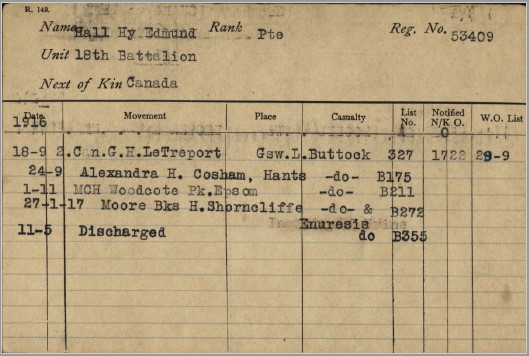 R. 149.
Name Hall Hy Edmund Rank Pte Reg. No. 53409
Unit 18th Battalion
Next of Kin Canada
Date Movement Place Casualty List No. Notified N/K O. W.O. List
1916 A O
18-9 2.C n.G.H.LeTreport Gsw.L.Buttock 327 1722 29-9
24-9 Alexandra H. Cosham, Hants -do- B175
1-11 MCH Woodcote Pk.Epsom -do- B211
27-1-17 Moore Bks H.Shorncliffe -do- & B272
Enuresis
11-5 Discharged do B355